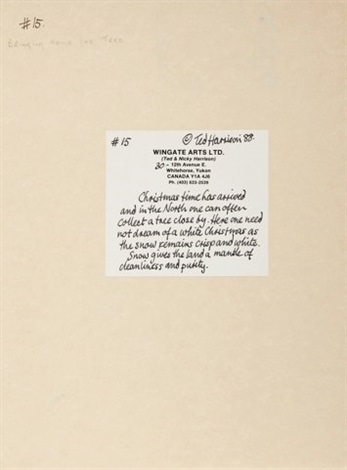 #15.
Bringing Home the Tree
#15 © Ted Harrison 88.
WINGATE ARTS LTD.
(Ted & Nicky Harrison)
30 - 12th Avenue E.
Whitehorse, Yukon
CANADA Y1A 4J6
Ph. (403) 633-2026
Christmas time has arrived
and in the North one can often
collect a tree close by. Here one need
not dream of a white Christmas as
the snow remains crisp and white.
Snow gives the land a mantle of
cleanliness and purity.